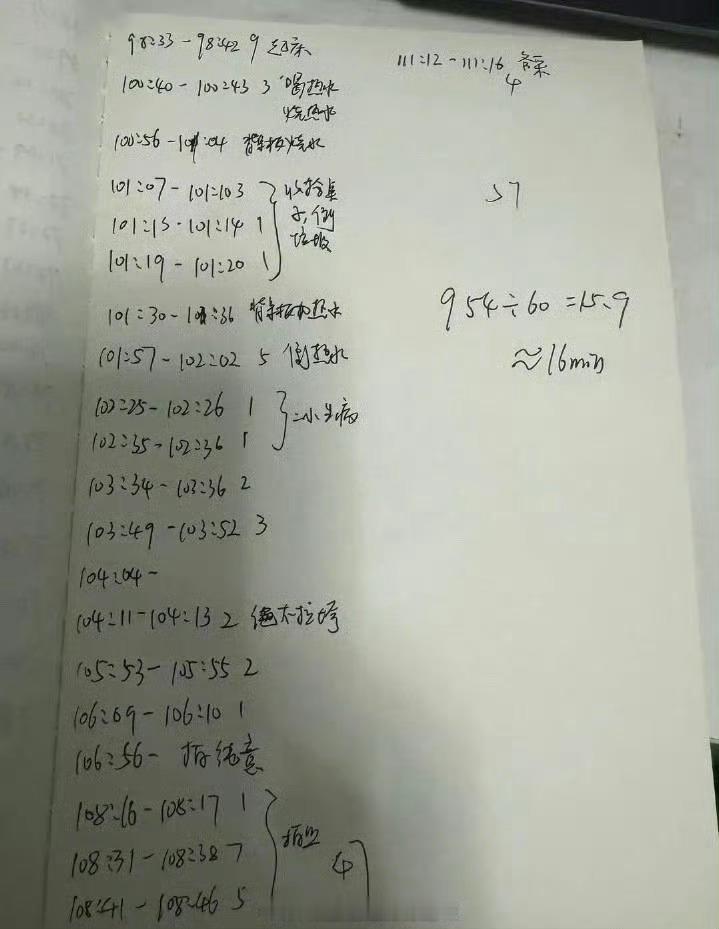 98:33 - 98:42 9 起床
100:40 - 100:43 3 喝热水
烧热水
100:56 - 101:04 背景板烧水
101:07 - 101:103 收拾桌
101:13 - 101:14 1 子,倒
101:19 - 101:20 1 垃圾
101:30 - 101:36 背景板加热水
101:57 - 102:02 5 倒热水
102:25 - 102:26 1
102:35 - 102:36 1
103:34 - 103:36 2
103:49 - 103:52 3
104:04 -
104:11 - 104:13 2
105:53 - 105:55 2
106:09 - 106:10 1
106:56 -
108:16 - 108:17 1
108:31 - 108:38 7
108:41 - 108:46 5
4
111:12 - 111:16 备菜
4
57
954÷60=15.9
≈16min